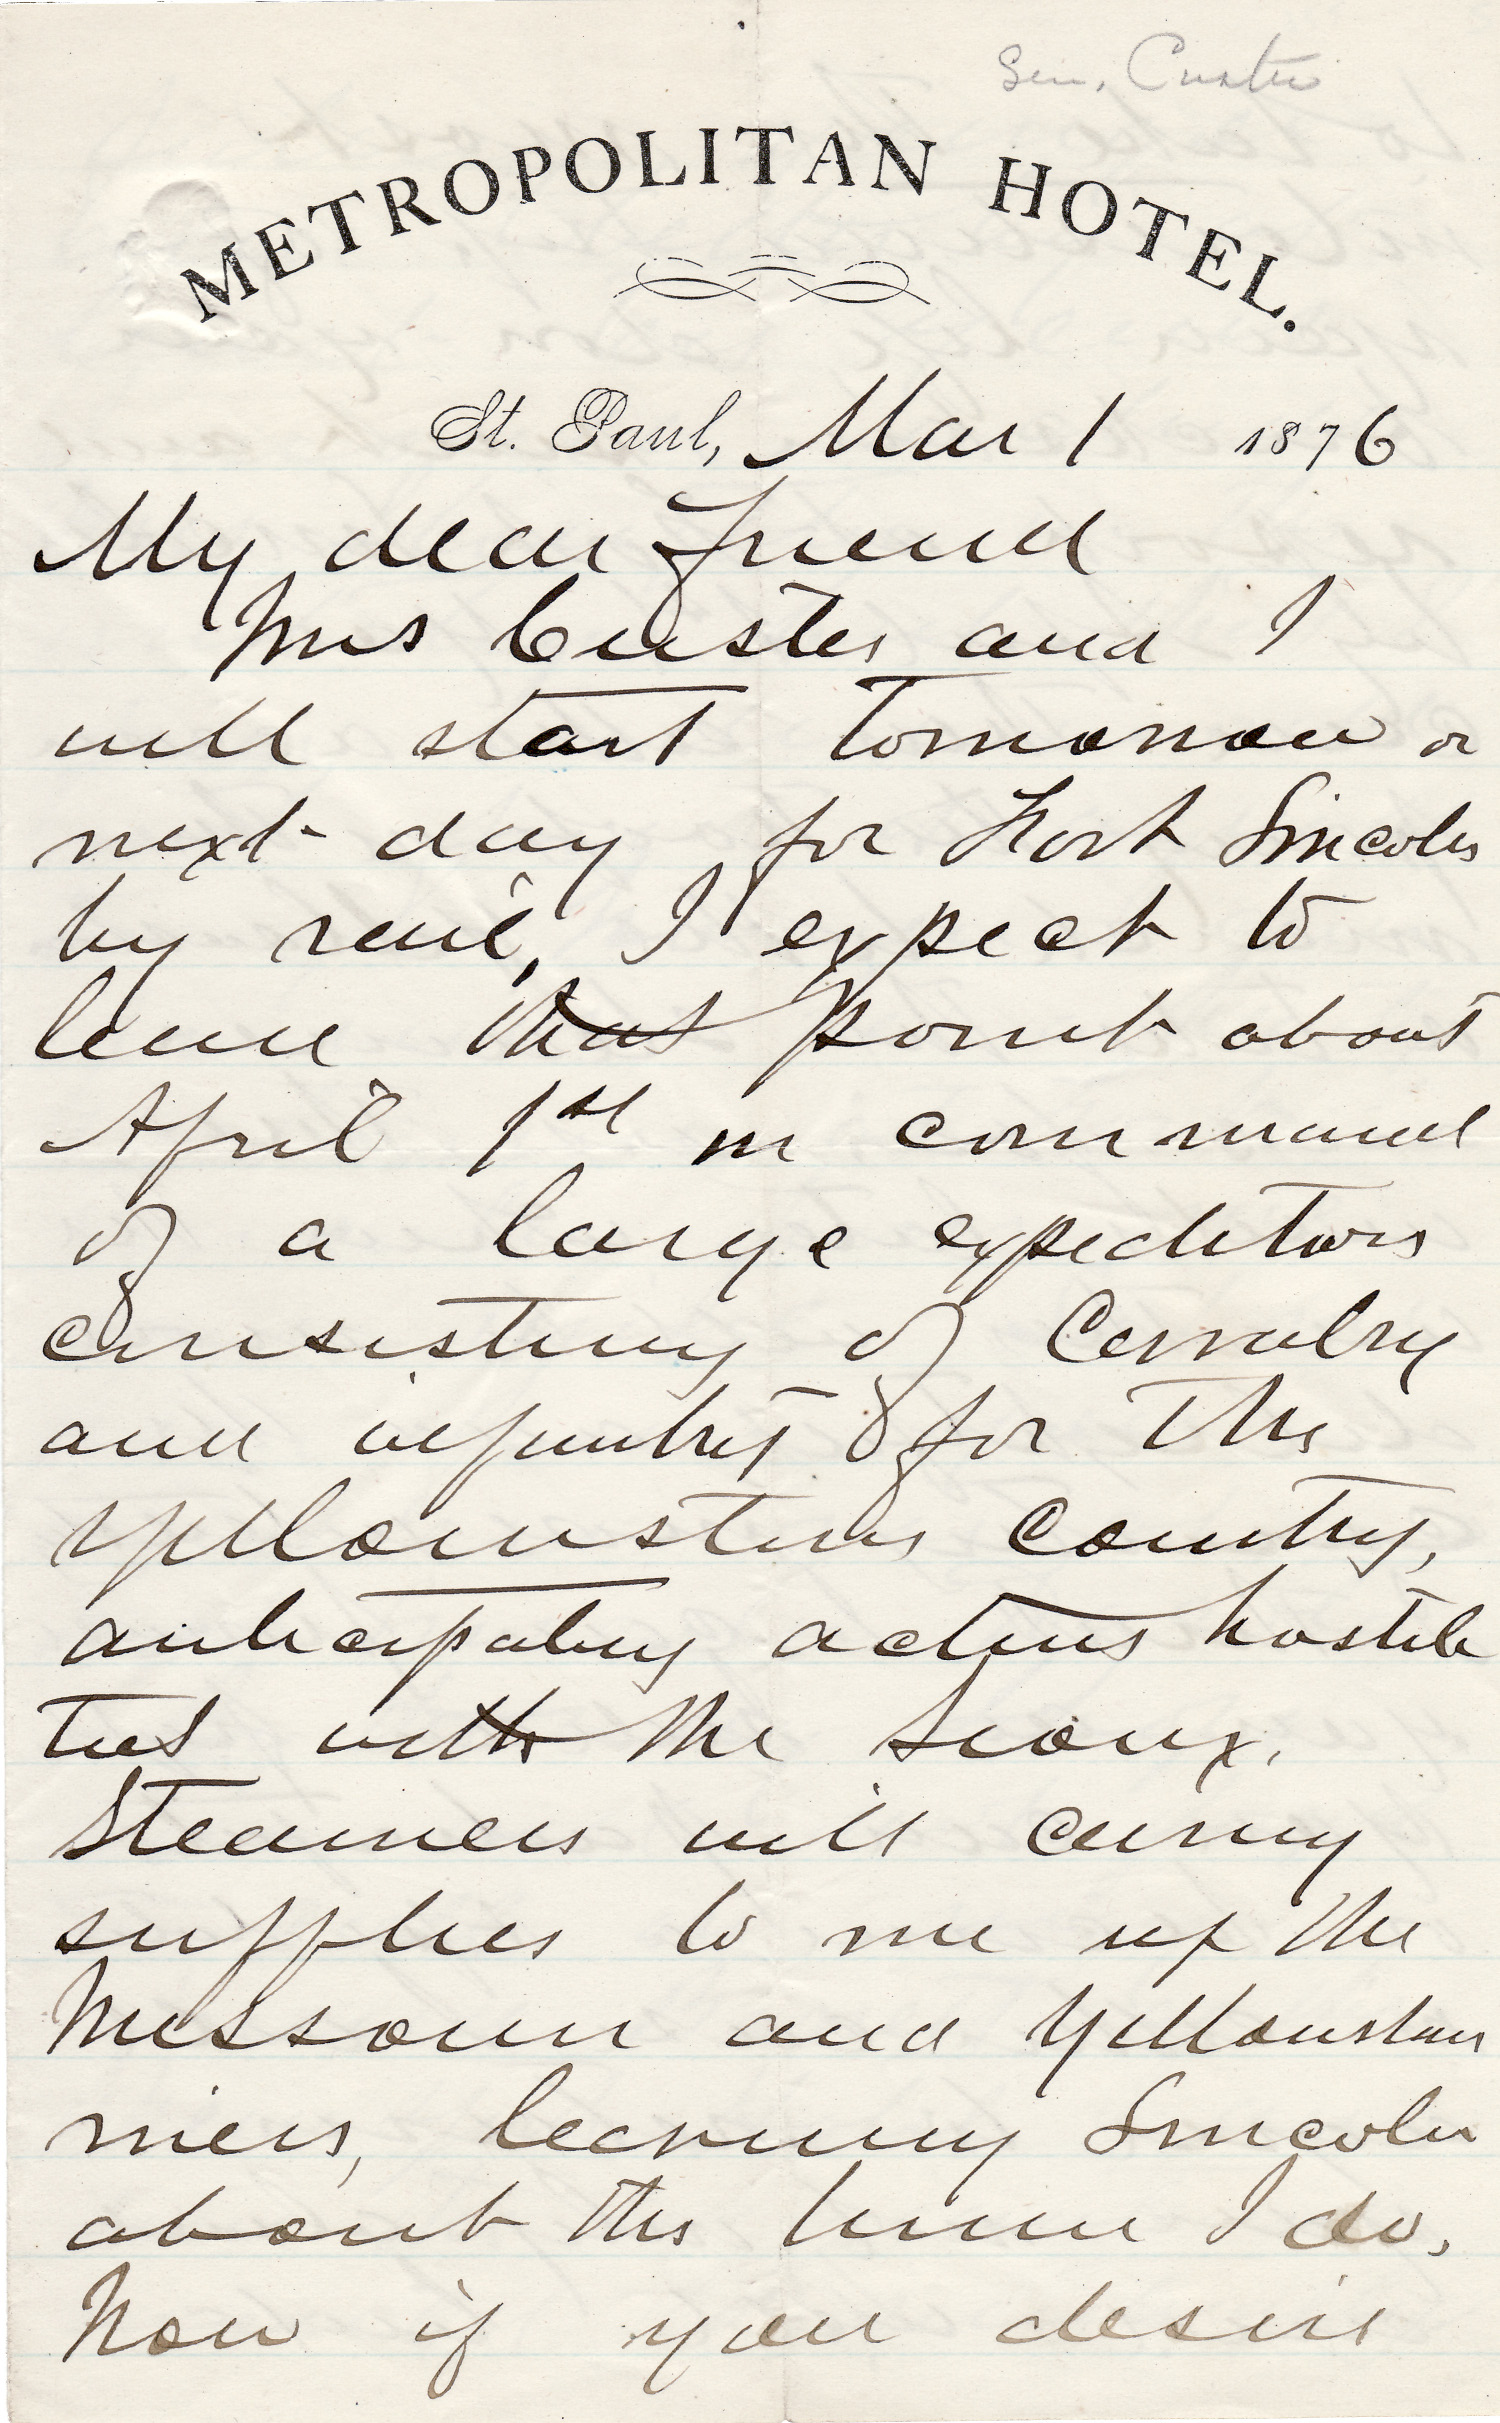 Gen. Custer
METROPOLITAN HOTEL.
St. Paul, Mar 1 1876
My dear friend
Mrs Custer and I
will start tomorrow or
next day for Fort Lincoln
by rail, I expect to
leave that point about
April 1st in command
of a large expedition
consisting of Cavalry
and infantry for the
Yellowstone country,
anticipating active hostili
ties with the Sioux.
Steamers will carry
supplies to me up the
Missouri and Yellowstone
rivers, leaving Lincoln
about the time I do,
Now if you desire